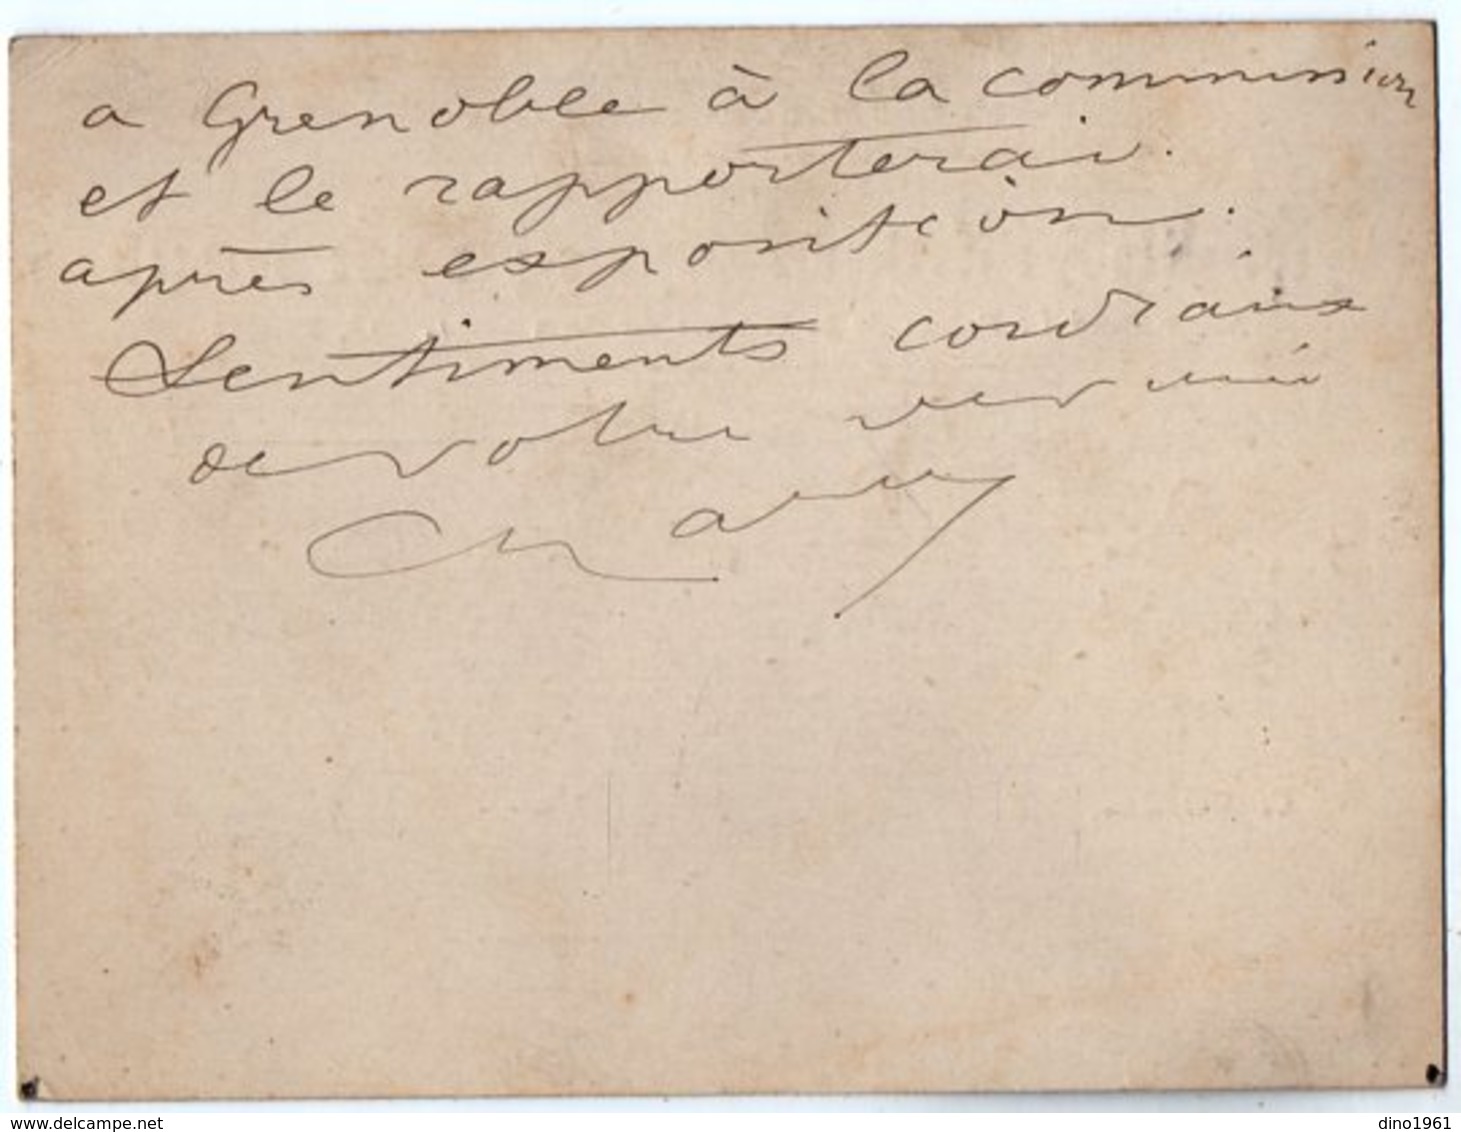 a Grenoble à la commission
et le rapporterai.
après exposition.
Sentiments cordiaux
de votre
dino1961
delcampe.net